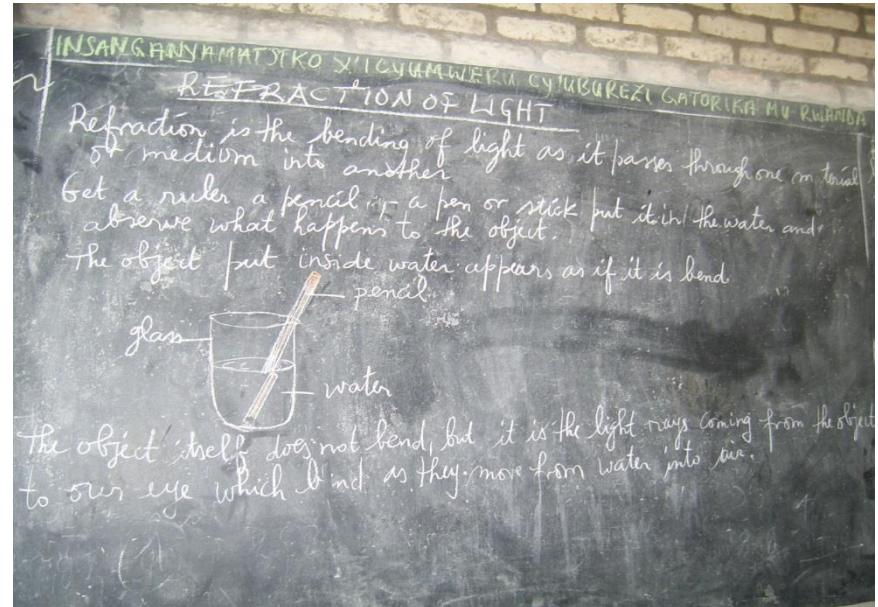 INSANGANYAMATSIKO Y'ICYUMWERU CY'UBUREZI GATORIKA MU RWANDA
REFRACTION OF LIGHT
Refraction is the bending of light as it passes through one material
or medium into another
Get a ruler a pencil or a pen or stick put it in the water and
observe what happens to the object.
The object put inside water appears as if it is bend
pencil
glass
water
The object itself does not bend, but it is the light rays coming from the object
to our eye which bind as they move from water into air.